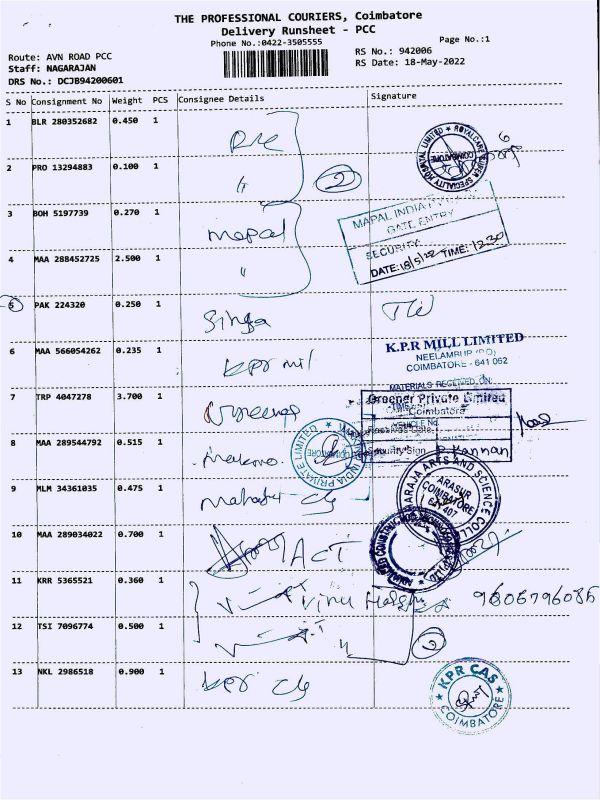 THE PROFESSIONAL COURIERS, Coimbatore
Delivery Runsheet - PCC
Phone No.:0422-3505555
Page No.:1
Route: AVN ROAD PCC
RS No.: 942006
Staff: NAGARAJAN
RS Date: 18-May-2022
DRS No.: DCJB94200601
S No Consignment No Weight PCS Consignee Details Signature
1 BLR 280352682 0.450 1
ROYALCARE SUPER SPECIALITY HOSPITAL LIMITED COIMBATORE
2 PRO 13294883 0.100 1 " 2
3 BOH 5197739 0.270 1 Mapal
MAPAL INDIA
GATE ENTRY
SECURITY
DATE: 18/5/22 TIME: 12.30
4 MAA 288452725 2.500 1 "
5 PAK 224320 0.250 1 Singa
6 MAA 566054262 0.235 1 Kpr mil
K.P.R MILL LIMITED
NEELAMBUR (PO)
COIMBATORE - 641 062
MATERIALS RECEIVED ON:
7 TRP 4047278 3.700 1
Greener Private Limited
Coimbatore
8 MAA 289544792 0.515 1
INDIA PRIVATE LIMITED
Security Sign Kannan
9 MLM 34361035 0.475 1
MAHARAJA ARTS AND SCIENCE COLL
ARASUR
COIMBATORE
641 407
10 MAA 289034022 0.700 1 ACT
11 KRR 5365521 0.360 1
12 TSI 7096774 0.500 1 "
13 NKL 2986518 0.900 1 kpr clg
KPR CAS
COIMBATORE